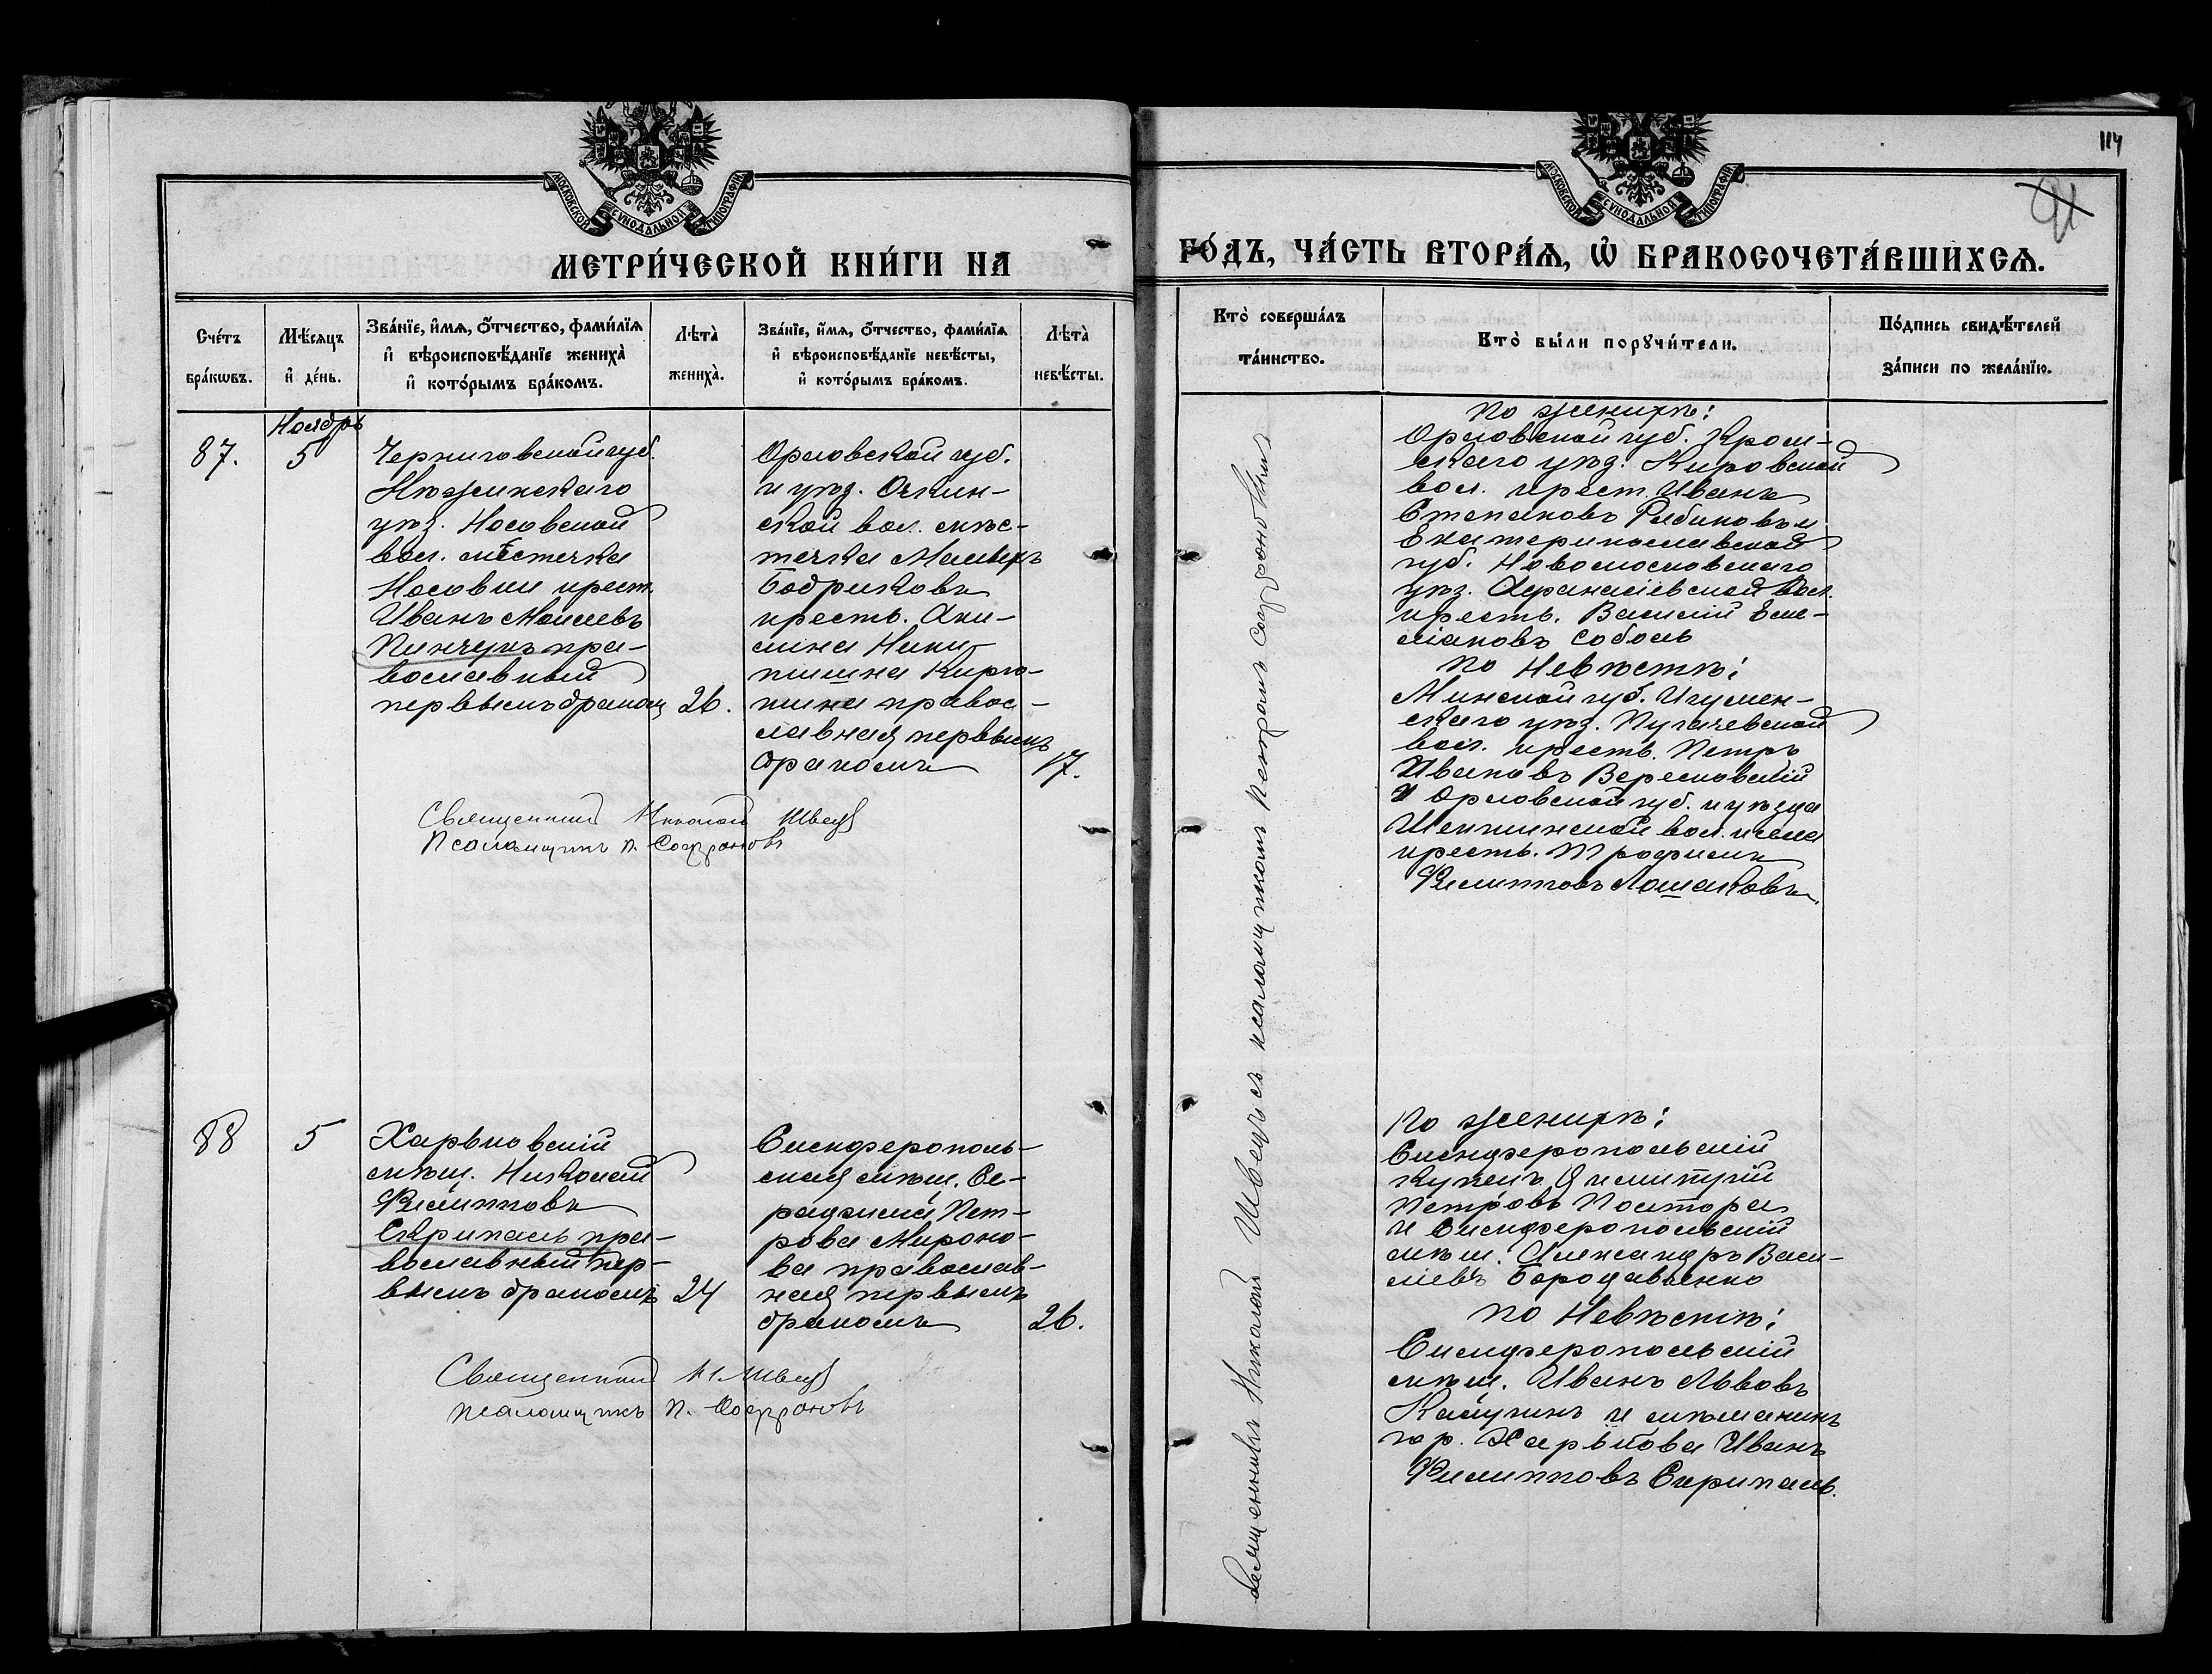 МОСКОВСКОЙ СѴНОДАЛЬНОЙ ТИПОГРАФІИ
МЕТРИ́ЧЕСКОЙ КНИ́ГИ НА
Сче́тъ бра́кѡвъ.
Мѣ́сяцъ и҆ де́нь.
Зва́нїе, и҆́мѧ, ѻ҆́тчество, фами́лїѧ
и҆ вѣроисповѣ́данїе жениха̀
и҆ кото́рымъ бра́комъ.
Лѣта̀ жениха̀.
Зва́нїе, и҆́мѧ, ѻ҆́тчество, фами́лїѧ
и҆ вѣроисповѣ́данїе невѣ́сты,
и҆ кото́рымъ бра́комъ.
Лѣта̀ невѣ́сты.
Ноябрь
87.
5
Черниговской губ.
Нѣжинскаго
уѣз. Носовской
вол. мѣстечка
Носовки крест.
Иванъ Моисеевъ
Пинчукъ пра-
вославный
первымъ бракомъ
26.
Орловской губ.
и уѣз.
ской вол. мѣс-
течка
крест. Аки-
лина Ники-
тина Кирю-
шина правос-
лавная первымъ
бракомъ
17.
Священникъ Николай Швецъ
Псаломщикъ П. Софроновъ
88
5
Харьковскій
мѣщ. Николай
Филипповъ
Скрипаль пра-
вославный пер-
вымъ бракомъ
24
Симферополь-
ская мѣщ. Се-
рафима Пет-
рова Мироно-
ва православ-
ная первымъ
бракомъ
26.
Священникъ Н Швецъ
псаломщикъ П. Софроновъ
114
91
МОСКОВСКОЙ СѴНОДАЛЬНОЙ ТИПОГРАФІИ
ГО́ДЪ, ЧА́СТЬ ВТОРА́Ѧ, Ѽ БРАКОСОЧЕТА́ВШИХСѦ.
Кто̀ соверша́лъ
та́инство.
Кто̀ бы́ли порꙋчи́тели.
По́дпись свидѣ́телей
за́писи по жела́нїю.
Священникъ Николай Швецъ съ псаломщикомъ Петромъ Софроновымъ
по женихѣ:
Орловской губ. Кром-
скаго уѣзд. Кировской
вол. крест. Иванъ
Степановъ Рябиковъ и
Екатеринославской
губ. Новомосковскаго
уѣз. Афанасіевской вол.
крест. Василій Еме-
ліановъ Соболь
по Невѣстѣ:
Минской губ. Игумен-
скаго уѣз. Пугачевской
вол. крест. Петръ
Ивановъ Вересковскій
и Орловской губ. и уѣзда
вол. и села
крест. Трофимъ
Филипповъ Лошаковъ.
По женихѣ:
Симферопольскій
купецъ Димитрій
Петровъ Полтора
и Симферопольскій
мѣщ. Александръ Васи-
ліевъ Бородавченко
по Невѣстѣ:
Симферопольскій
мѣщ. Иванъ Львовъ
и мѣщанинъ
гор. Харькова Иванъ
Филипповъ Скрипаль.